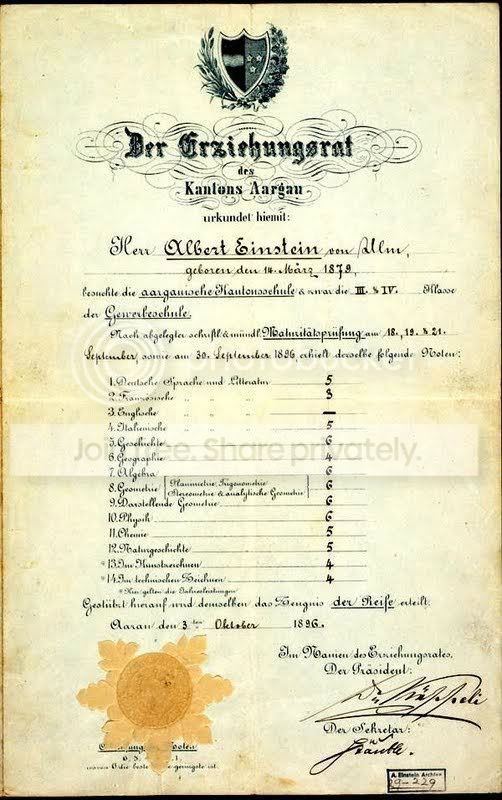 Der Erziehungsrat
des
Kantons Aargau
urkundet hiemit:
Herr Albert Einstein von Ulm,
geboren den 14. März 1879,
besuchte die aargauische Kantonsschule & zwar die III. & IV. Klasse
der Gewerbeschule.
Nach abgelegter schriftl. & mündl. Maturitätsprüfung am 18., 19. & 21.
September, sowie am 30. September 1896, erhielt derselbe folgende Noten:
1. Deutsche Sprache und Litteratur 5
2. Französische " " " 3
3. Englische " " " —
4. Italienische " " " 5
5. Geschichte 6
6. Geographie 4
7. Algebra 6
8. Geometrie Planimetrie, Trigonometrie 6
Stereometrie & analytische Geometrie
9. Darstellende Geometrie 6
10. Physik 6
11. Chemie 5
12. Naturgeschichte 5
*13. Im Kunstzeichnen 4
*14. Im technischen Zeichnen 4
*Hier gelten die Jahresleistungen.
Gestützt hierauf wird demselben das Zeugnis der Reife erteilt.
Aarau den 3ten Oktober 1896.
Im Namen des Erziehungsrates,
Der Präsident:
Der Sekretär:
6, 5
die beste
geringste ist.
A. Einstein Archive
29-229
Share privately.